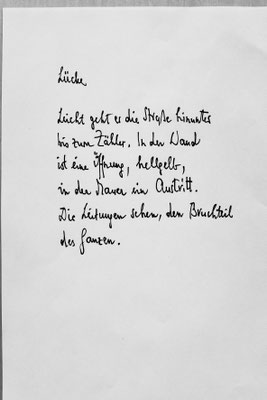 Lücke
Leicht geht es die Straße hinunter
bis zum Zähler. In der Wand
ist eine Öffnung, hellgelb,
in der Mauer ein Austritt.
Die Leitungen sehen, den Bruchteil
des Ganzen.